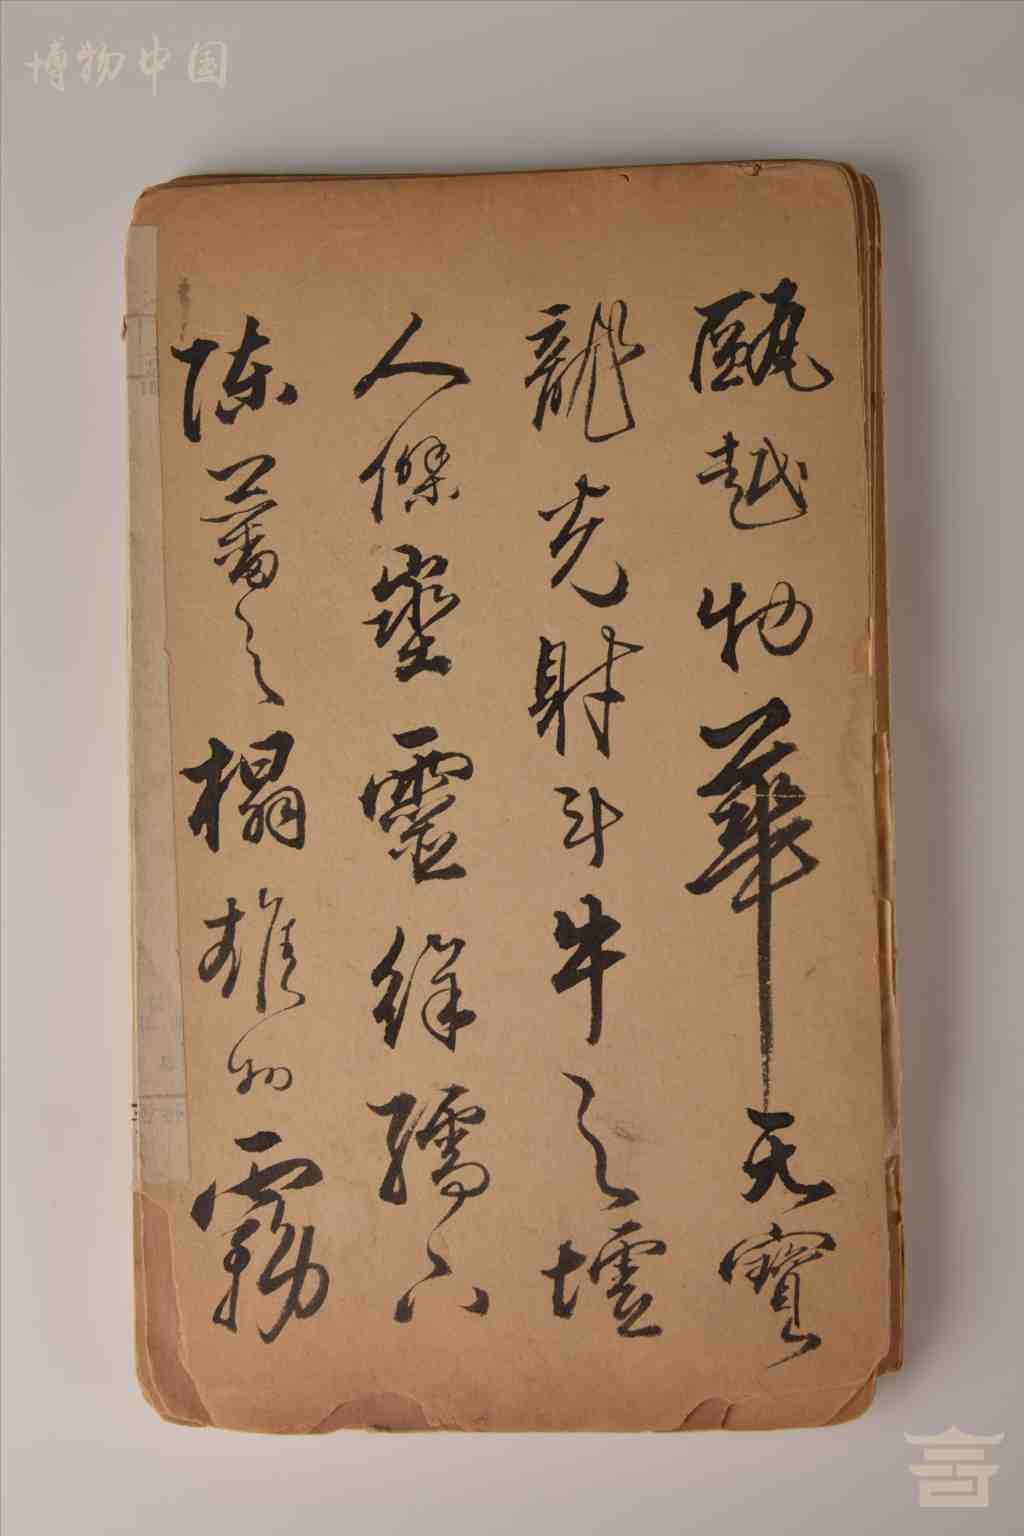 博物中国
甌越物華天寶
龍光射斗牛之墟
人傑埊靈徐孺下
陳蕃之榻雄州霧